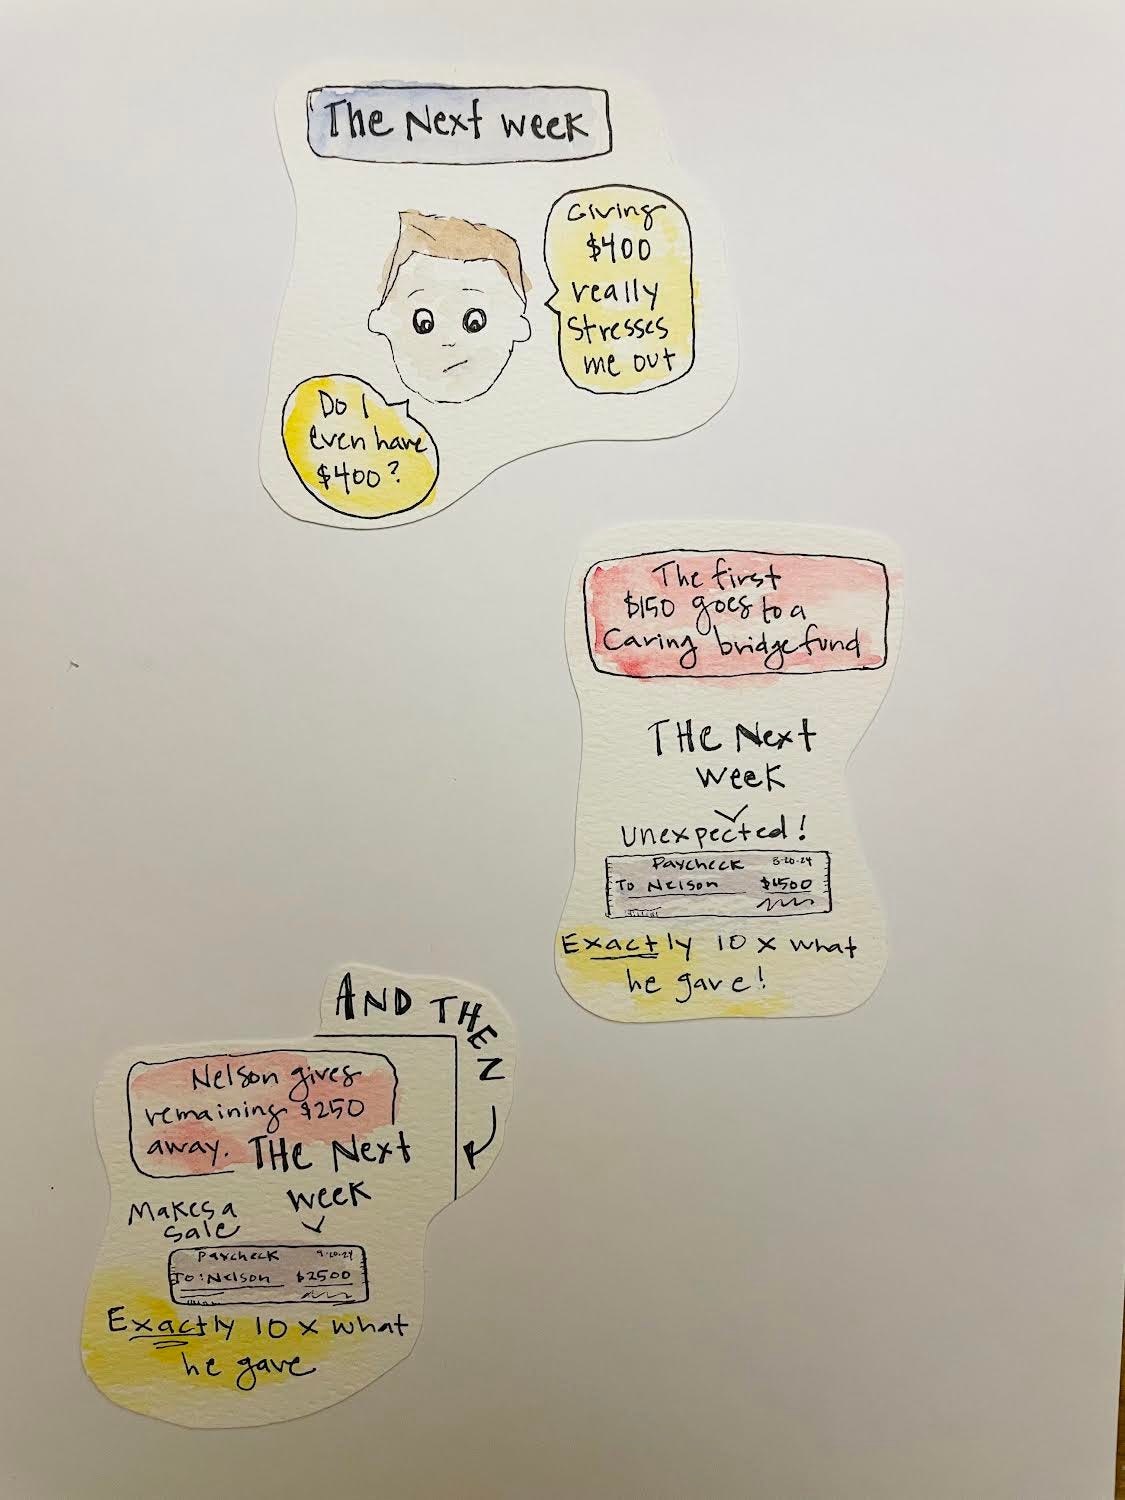 The Next week
Giving
$400
really
stresses
me out
Do I
even have
$400?
The first
$150 goes to a
Caring bridge fund
THE Next
week
unexpected!
Paycheck 3-20-24
To Nelson $1500
Exactly 10 x what
he gave!
AND THEN
Nelson gives
remaining $250
away.
THE Next
week
Makes a
sale
Paycheck
To: Nelson $2500
Exactly 10 x what
he gave